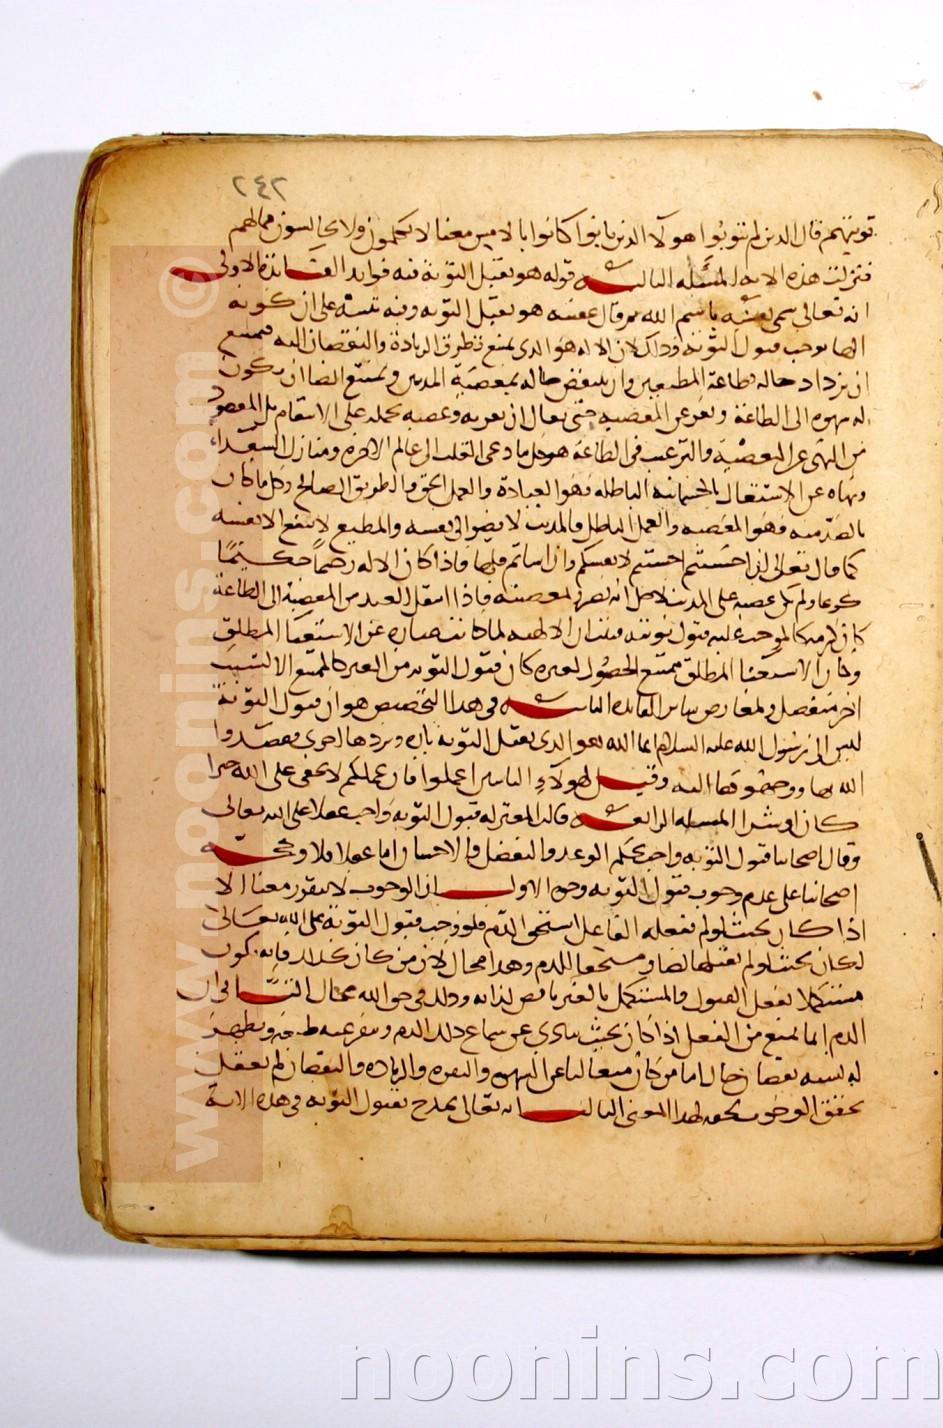 ٢٤٢
توبتهم قال الذين لم يتوبوا هولآ الذين تابوا كانوا بالامس معنا لا يكلمون ولا يجالسون فما لهم
فنزلت هذه الايه المسئله الثالثه قوله هو يقبل التوبة فيه فوايد الفائدة الاولى
انه تعالى سمى نفسه باسم الله ثم قال عقبه هو يقبل التوبه وفيه تنبيه على ان كونه
الها يوجب قبول التوبة وذاك لان الاله هو الذي يمتنع تطرق الزيادة والنقصان اليه فيمتنع
ان يزداد حاله بطاعة المطيعين وان ينتقص حاله بمعصية المذنبين ويمتنع ايضا ان يكون
له شهوه الى الطاعة ونفره عن المعصيه حتى يقال ان نفرته وغضبه يحمله على الانتقام بل المقصود
من النهي عن المعصية والترغيب في الطاعة هو كل ما دعى القلب الى عالم الاخرة ومنازل السعداء
ونهاه عن الاشتغال بالجسمانية الباطله فهو العبادة والعمل الحق والطريق الصالح وكل ما كان
بالضد منه فهو المعصيه والعمل الباطل فالمذنب لا يضر الا نفسه والمطيع لا ينفع الا نفسه
كما قال تعالى ان احسنتم احسنتم لانفسكم وان اساتم فلها فاذا كان الاله رحيما حكيما
كريما ولم يكن غضبه على المذنب لاجل انه تضرر بمعصيته فاذا انتقل العبد من المعصية الى الطاعة
كان كرمه كالموجب عليه قبول توبته فثبت ان الالهيه لما كانت عبارة عن الاستغنا المطلق
وكان الاستغنا المطلق ممتنع الحصول لغيره كان قبول التوبه من الغير كالممتنع الا لسبب
اخر منفصل ولمعارض ساير الفائده الثانيه في هذا التخصيص هو ان قبول التوبة
ليس الى رسول الله عليه السلام انما الله هو الذي يقبل التوبه تارة ويردها اخرى فقصدوا
الله بها ووجهوها اليه وقيل لهولآء التائبين اعملوا فان عملكم لا يخفى على الله خيرا
كان او شرا المسله الرابعه قالت المعتزله قبول التوبه واجب عقلا على الله تعالى
وقال اصحابنا قبول التوبه واجب بحكم الوعد والتفضل والاحسان اما عقلا فلا وحجه
اصحابنا على عدم وجوب قبول التوبه وجوه الاول ان الوجوب لا يتقرر معناه الا
اذا كان بحيث لو لم يفعله الفاعل استحق الذم فلو وجب قبول التوبة على الله تعالى
لكان بحيث لو لم يقبلها لصار مستحقا للذم وهذا محال لان من كان كذلك فانه يكون
مستكملا بفعل القبول والمستكمل بالغير ناقص لذاته وذلك في حق الله محال الثاني ان
الذم انما يمنع من الفعل اذا كان بحيث يتاذى عن سماع ذلك الذم وينفر عنه طبعه ويظهر
له بسببه نقصان حال اما من كان متعاليا عن الشهوه والنفره والزياده والنقصان لم يعقل
تحقق الوجوب في حقه لهذا المعنى الثالث انه تعالى يمدح بقبول التوبه في هذه الاية
www.noonins.com ©
noonins.com